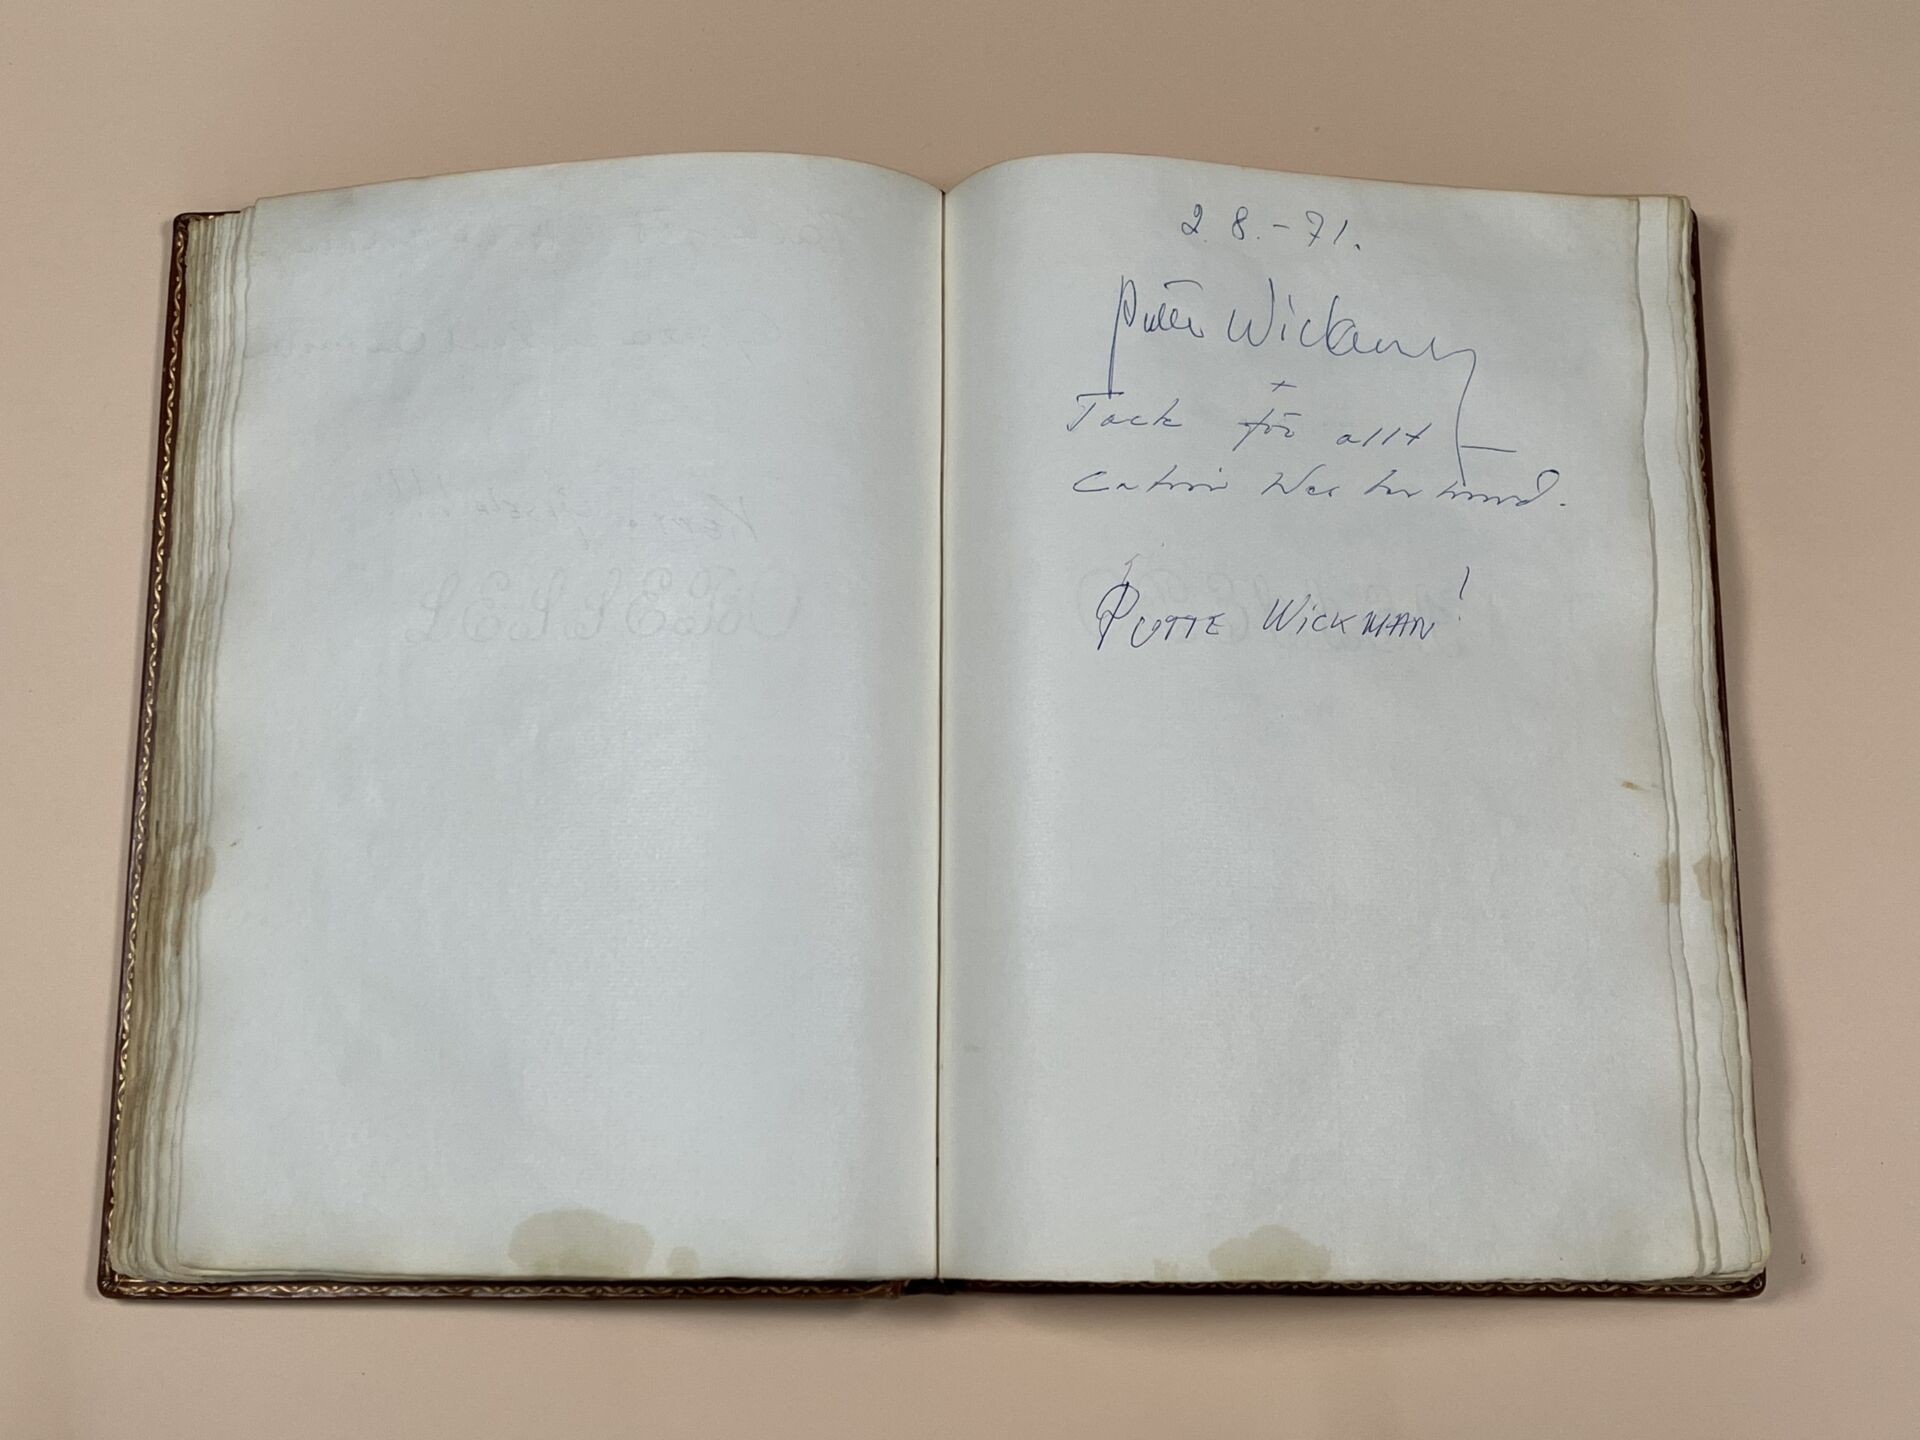 2.8.-71.
Putte Wickman
+
Tack för allt —
Catrin Westerlund.
PUTTE WICKMAN!